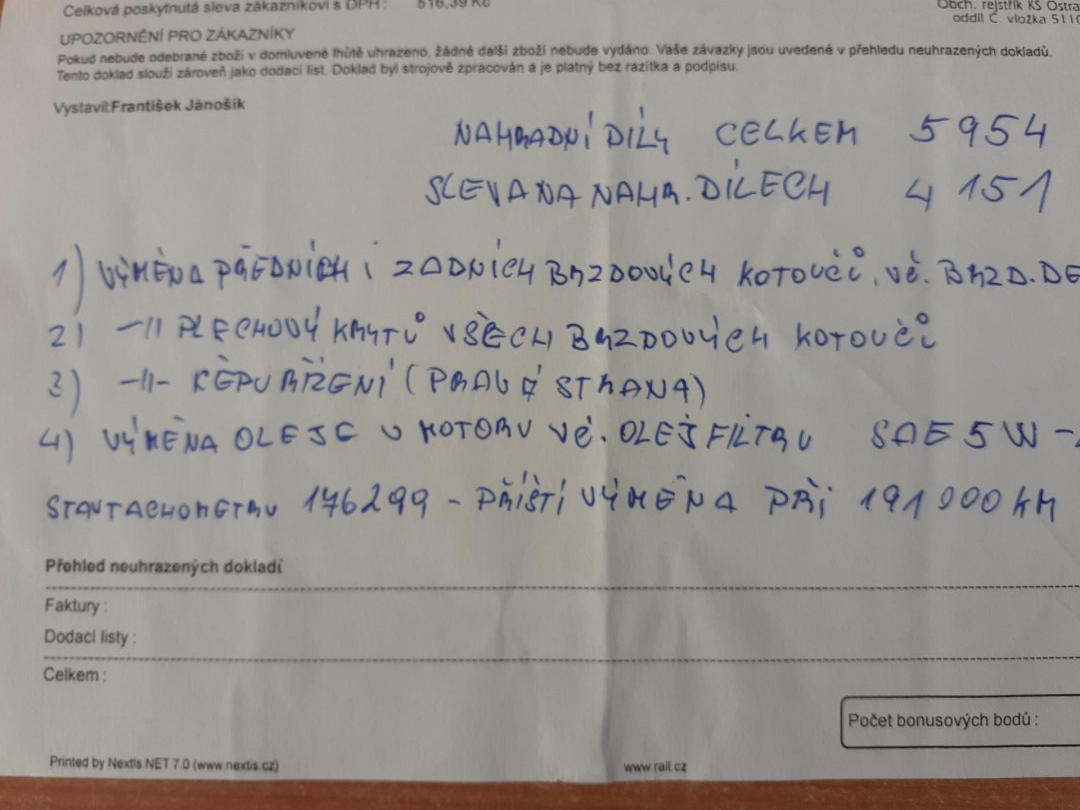 Celková poskytnutá sleva zákazníkovi s DPH : 516,39 Kč
Obch. rejstřík KS Ostra
oddíl C. vložka 5110
UPOZORNĚNÍ PRO ZÁKAZNÍKY
Pokud nebude odebrané zboží v domluvené lhůtě uhrazeno, žádné další zboží nebude vydáno. Vaše závazky jsou uvedené v přehledu neuhrazených dokladů.
Tento doklad slouží zároveň jako dodací list. Doklad byl strojově zpracován a je platný bez razítka a podpisu.
Vystavil:František Jánošík
NAHRADNÍ DÍLY CELKEM 5954
SLEVA NA NAHR. DÍLECH 4 151
1) VÝMĚNA PŘEDNÍCH I ZADNÍCH BRZDOVÝCH KOTOUČŮ, VČ. BRZD. DE
2) -||- PLECHOVÝ KRYTŮ VŠECH BRZDOVÝCH KOTOUČŮ
3) -||- ŘÍZENÍ (PRAVÁ STRANA)
4) VÝMĚNA OLEJE V MOTORU VČ. OLEJ FILTRU SAE 5W -
STAV TACHOMETRU 176299 - PŘÍŠTÍ VÝMĚNA PŘI 191 000 KM
Přehled neuhrazených dokladů
Faktury :
Dodací listy :
Celkem :
Počet bonusových bodů :
Printed by Nextis.NET 7.0 (www.nextis.cz)
www.rail.cz